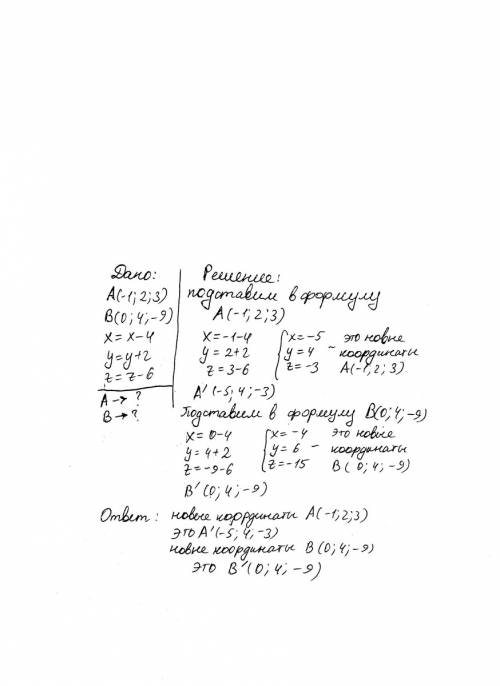 Дано:
A(-1; 2; 3)
B(0; 4; -9)
x = x-4
y = y+2
z = z-6
A → ?
B → ?
Решение:
подставим в формулу
A(-1; 2; 3)
x = -1-4 { x = -5 - это новые
y = 2+2 { y = 4 координаты
z = 3-6 { z = -3 A(-1; 2; 3)
A' (-5; 4; -3)
Подставим в формулу B(0; 4; -9)
x = 0-4 { x = -4 это новые
y = 4+2 { y = 6 - координаты
z = -9-6 { z = -15 B(0; 4; -9)
B' (0; 4; -9)
Ответ: новые координаты A(-1; 2; 3)
это A' (-5; 4; -3)
новые координаты B(0; 4; -9)
это B' (0; 4; -9)